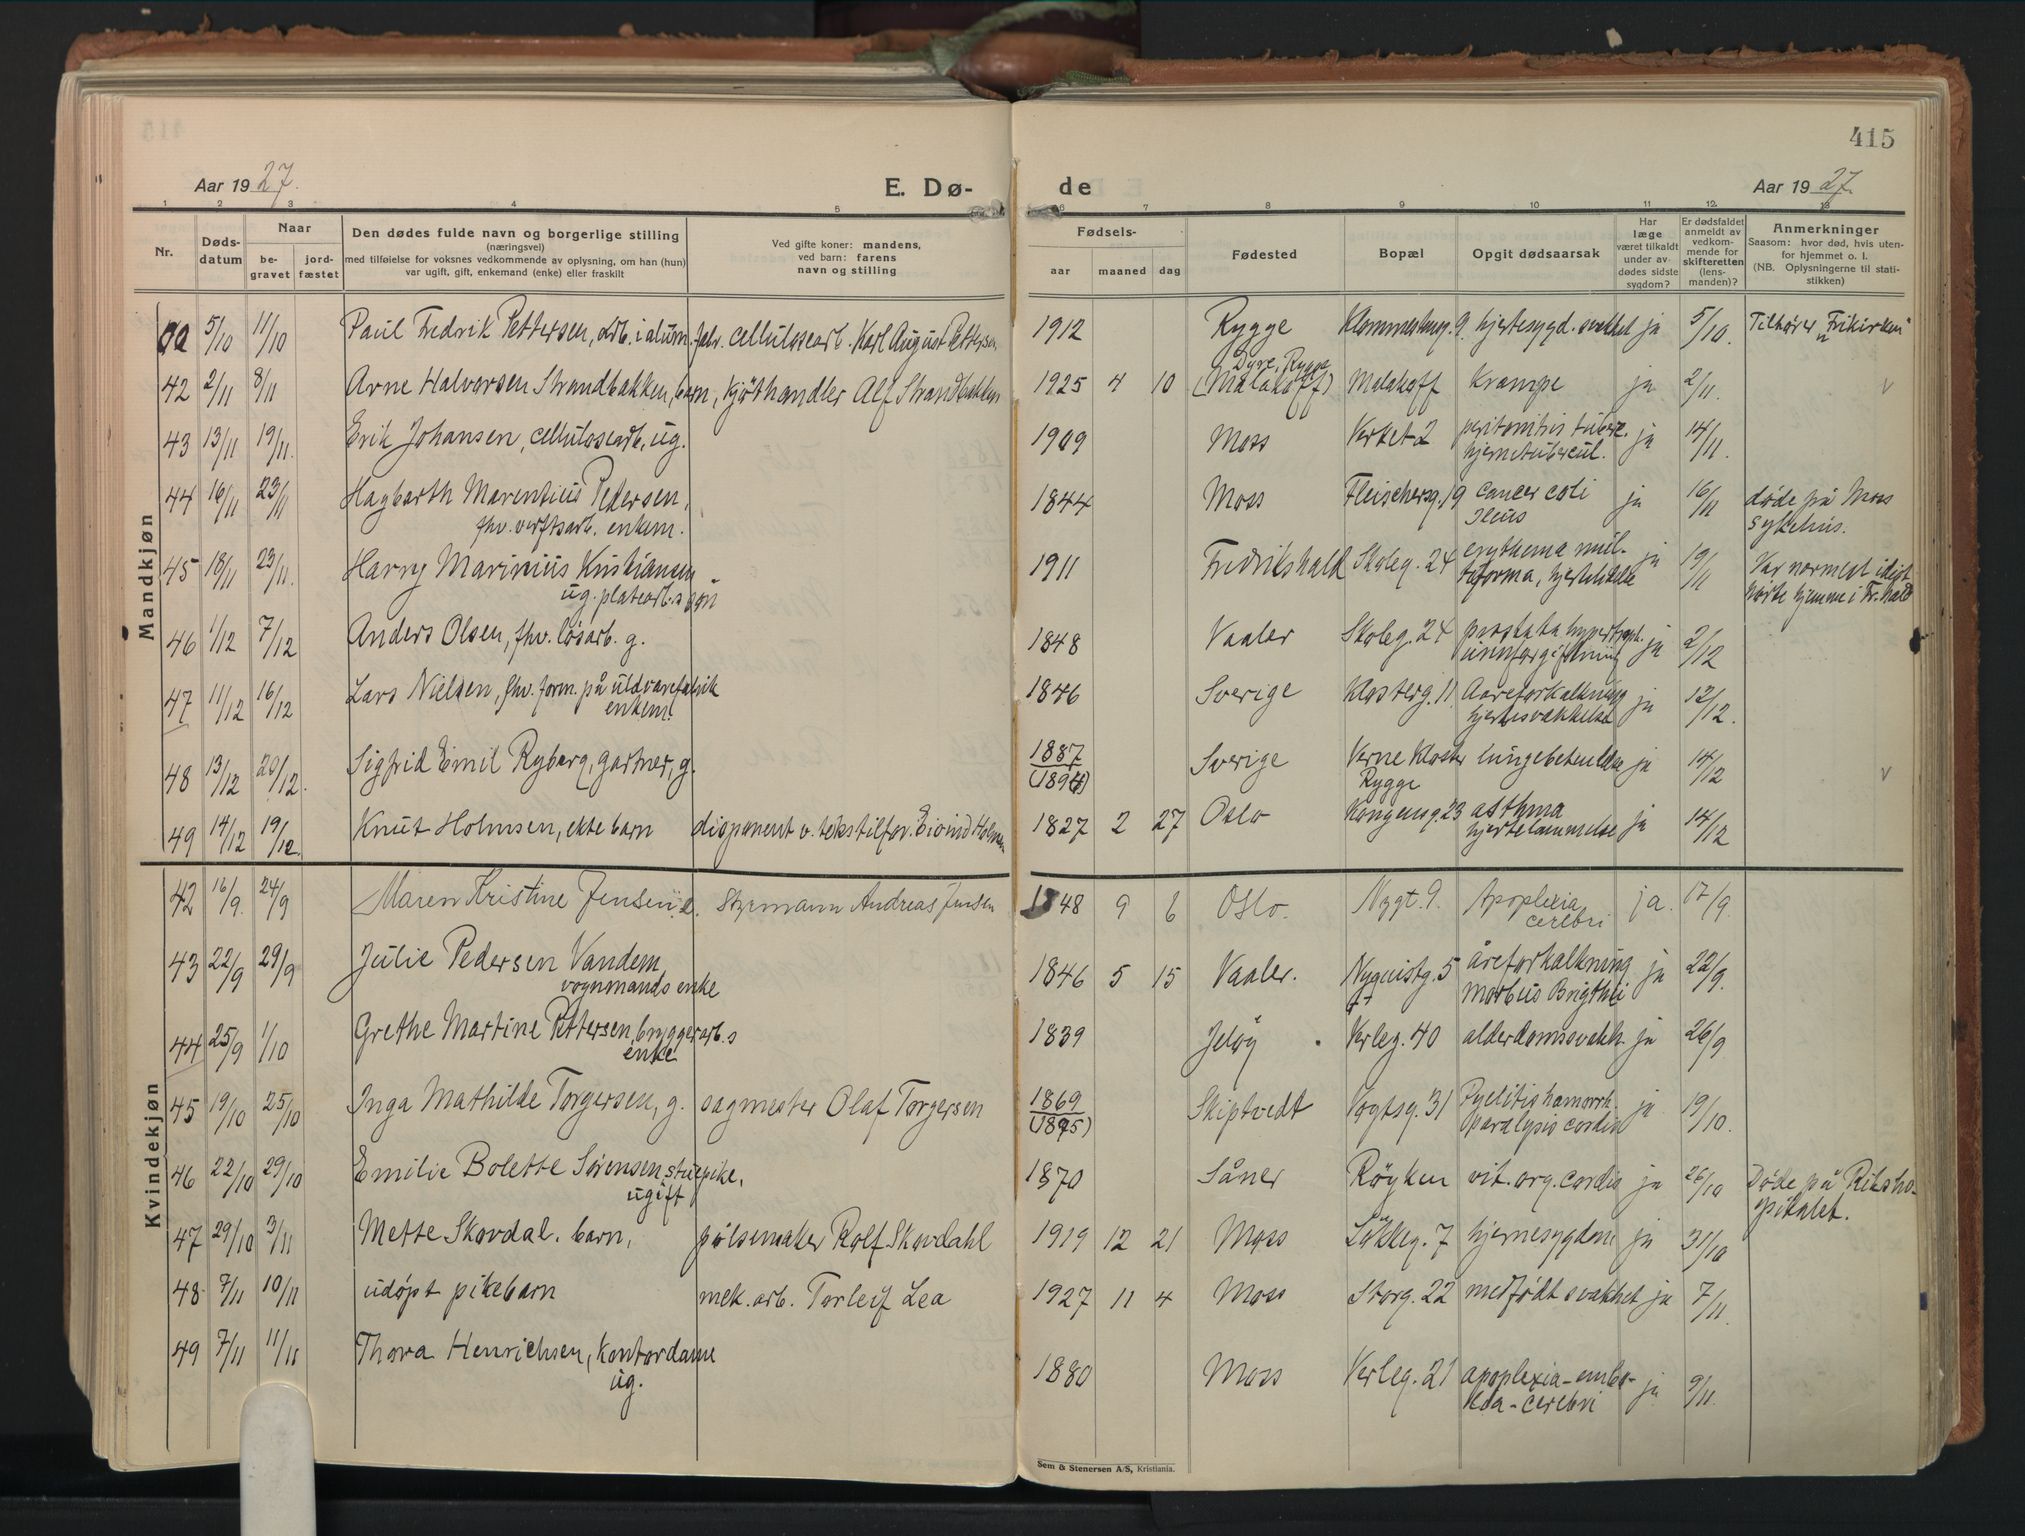 415
Aar 1927.
E. Dø-
de
Aar 1927.
1 2 3 4 5 6 7 8 9 10 11 12. 13
Nr.
Døds-
datum
Naar
be-
gravet
jord-
fæstet
Den dødes fulde navn og borgerlige stilling
(næringsvei)
med tilføielse for voksnes vedkommende av oplysning, om han (hun)
var ugift, gift, enkemand (enke) eller fraskilt
Ved gifte koner: mandens,
ved barn: farens
navn og stilling
Fødsels-
aar maaned dag
Fødested
Bopæl
Opgit dødsaarsak
Har
læge
været tilkaldt
under av-
dødes sidste
sygdom?
Er dødsfaldet
anmeldt av
vedkom-
mende for
skifteretten
(lens-
manden)?
Anmerkninger
Saasom: hvor død, hvis uten-
for hjemmet o. l.
(NB. Oplysningerne til stati-
stikken)
Mandkjøn
5/10 11/10 Paul Fredrik Pettersen, arb. i alum. fabr. cellulosearb. Karl August Pettersen 1912 Rygge 9. hjertesygd. svakhet ja 5/10. Tilhører "Frikirken"
Dyre, Rygge
42 2/11 8/11 Arne Halvorsen Strandbakken, barn, kjøthandler Alf Strandbakken 1925 4 10 (Malakoff) Malakoff Krampe ja 2/11. v
43 13/11 19/11. Erik Johansen, cellulosearb., ug. 1909 Moss Verket 2 peritonitis tuberc. ja 14/11.
hjernetubercul.
44 16/11 23/11 Hagbarth Marentius Pedersen, 1844 Moss Fleischersg. 19 cancer coli ja 16/11 døde på Moss
fhv. verftsarb. enkem. Ileus sykehus.
45 18/11 23/11. Harry Marinius Kristiansen 1911 Fredrikshald Skoleg. 24 erythema mul- ja 19/11 Var normert idiot
ug. platearb.s søn tiforma, hjertelidelse hørte hjemme i Fr.hald
46 1/12 7/12 Anders Olsen, fhv. løsarb. g. 1848 Vaaler Skoleg. 24 prostata hypertroph. ja 2/12
urinforgiftning
47 11/12 16/12 Lars Nielsen, fhv. form. på uldvarefabrik 1846 Sverige Klosterg. 11. Aareforkalkning ja 12/12.
enkem. hjertesvækkelse
48 13/12 20/12. Sigfrid Emil Ryberg, gartner, g. 1887 Sverige Verne Kloster lungebetendelse ja 14/12 v
(1894) Rygge
49 14/12 19/12. Knut Holmsen, ekte barn disponent v. tekstilfor. Eivind Holmsen 1827 2 27 Oslo Kongensg. 23 asthma ja 14/12
hjertelammelse
Kvindekjøn
42 16/9. 24/9 Maren Kristine Jensen, e. Styrmann Andreas Jensen 1848 9 6 Oslo. Nygt. 9. Apoplexia ja. 17/9.
cerebri
43 22/9 29/9 Julie Pedersen Vandem 1846 5 15 Vaaler. Nyquistg. 5 åreforkalkning ja 22/9.
vognmands enke Morbus Brigthii
44 25/9 1/10 Grethe Martine Pettersen, bryggerarb.s 1839 Jeløy Verleg. 40 alderdomssvakh. ja 26/9
enke
45 19/10 25/10 Inga Mathilde Torgersen, g. sagmester Olaf Torgersen 1869 Skiptvedt Vogtsg. 31 Pyelitis hæmorrh. ja 19/10.
(1895) paralysis cordis
46 22/10 29/10 Emilie Bolette Sørensen, stuepike, 1870 Såner Røyken vit. org. cordis ja 26/10 Døde på Riksho-
ugift spitalet.
47 29/10 3/11 Mette Skovdal. barn, pølsemaker Rolf Skovdahl 1919 12 21 Moss Løkkeg. 7 hjernesygdom ja 31/10
48 7/11 10/11 udøpt pikebarn mek. arb. Torleif Lea 1927 11 4 Moss Storg. 22 medfødt svakhet ja 7/11.
49 7/11 11/11 Thora Henrichsen, kontordame 1880 Moss Verleg. 21 apoplexia - embo- ja 9/11.
ug. lia - cerebri
Sem & Stenersen A/S, Kristiania.